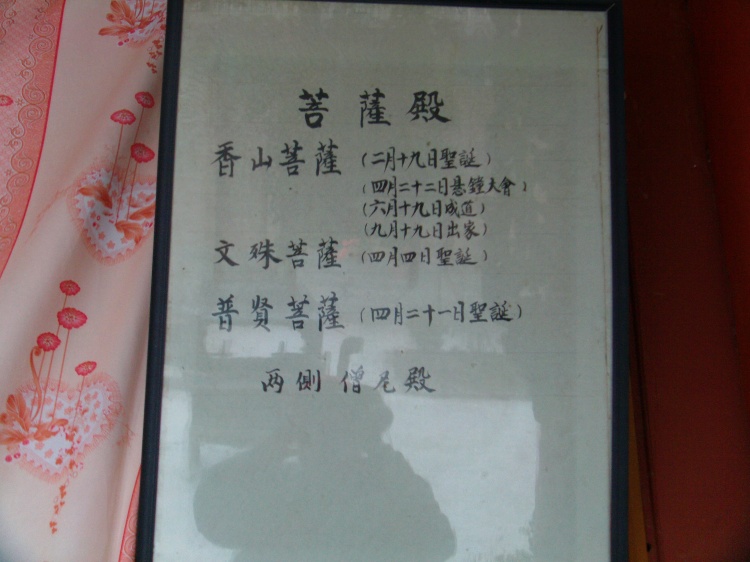 菩薩殿
香山菩薩（二月十九日聖誕）
（四月二十二日悬鐘大會）
（六月十九日成道）
（九月十九日出家）
文殊菩薩（四月四日聖誕）
普贤菩薩（四月二十一日聖誕）
两側僧尼殿